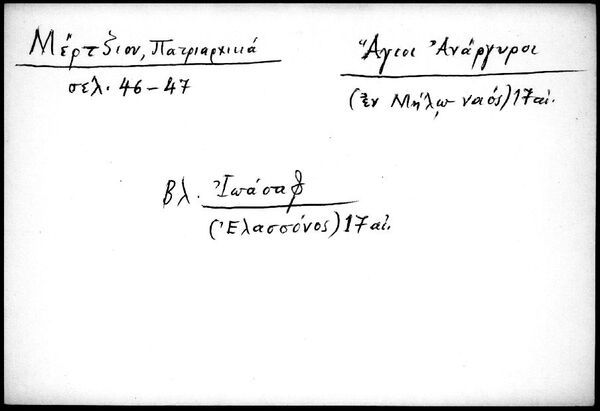 Μέρτζιου, Πατριαρχικά
σελ. 46-47
Ἅγιοι Ἀνάργυροι
(ἐν Μήλῳ ναός) 17 αἰ.
Βλ. Ἰωάσαφ
(Ἐλασσόνος) 17 αἰ.